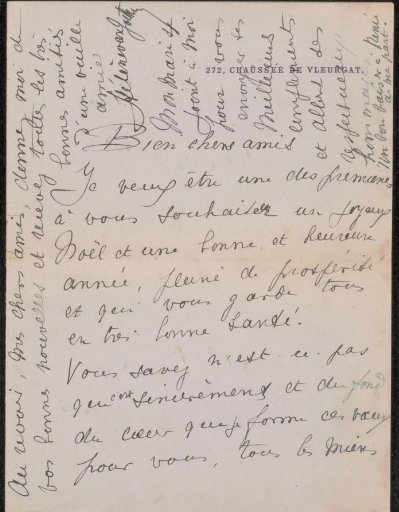 272, CHAUSSÉE DE VLEURGAT.
Bien chers amis
Je veux être une des premières
à vous souhaiter un joyeux
Noël et une bonne et heureuse
année, pleine de prospérité
et qui vous garde tous
en très bonne santé.
Vous savez n'est-ce pas
que c'est sincèrement et du fond
du cœur que je forme ces vœux
pour vous, tous les miens
Mon Mari se
joint à moi
pour vous
envoyer ses
meilleurs
compliments
et Albert ses
affectueux
hommages
Un bon baiser à
de ma part.
Au revoir, mes chers amis, donnez moi de
vos bonnes nouvelles et recevez toutes les très
bonnes amitiés
d'une vieille
amie